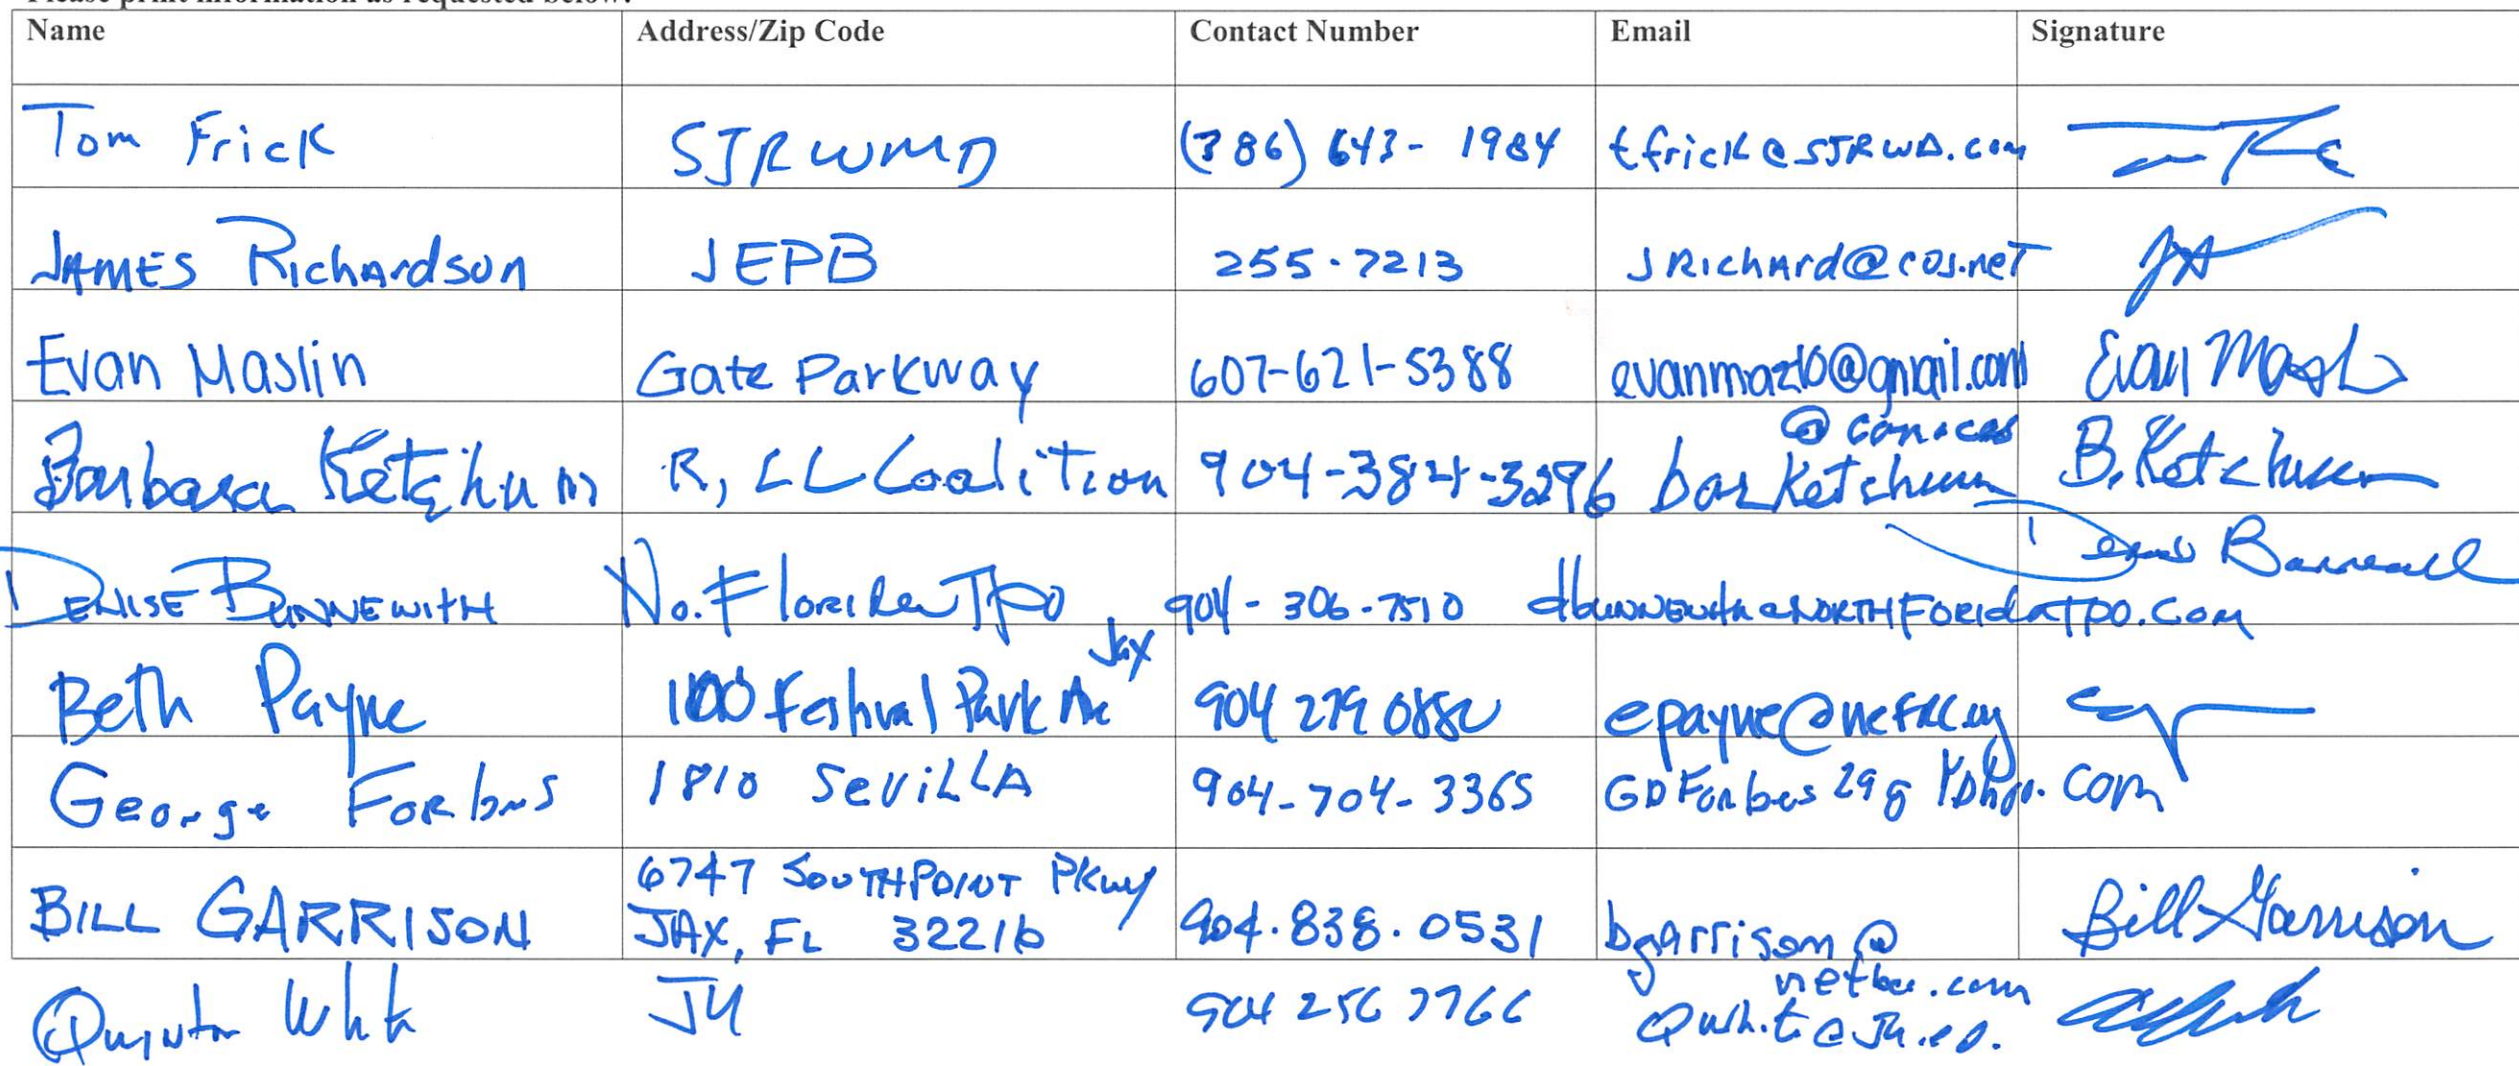 Name Address/Zip Code Contact Number Email Signature
Tom Frick SJRWMD (386) 643-1984 tfrick@SJRWD.com
JAMES Richardson JEPB 255.7213 JRichard@coj.net
Evan Maslin Gate Parkway 607-621-5388 evanmaz10@gmail.com Evan Masl
@
Barbara Ketchum R, LL Coalition 904-384-3296 barketchum B. Ketchum
DENISE BUNNEWITH No. Florida TPO 904-306-7510 dbunnewith@NORTHFORIDATPO.com
Jax
Beth Payne 100 Festival Park Ave 904 279 0880 epayne@nefrc.org
George Forbes 1810 SeviLLA 904-704-3365 GDForbes29@ .com
6747 SOUTHPOINT PKwy
BILL GARRISON JAX, FL 32216 904.838.0531 bgarrison@ Bill Garrison
.com
Quinton White JU 904 256 7766